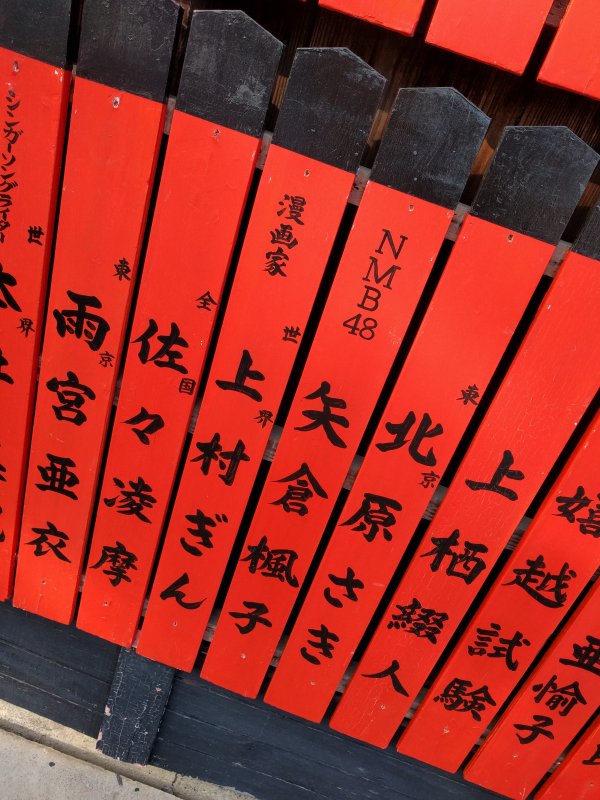 亜愉子
越試験
上栖綴人
東京
北原さき
NMB48
矢倉楓子
漫画家
世界
上村ぎん
全国
佐々凌摩
東京
雨宮亜衣
シンガーソングライター
世界